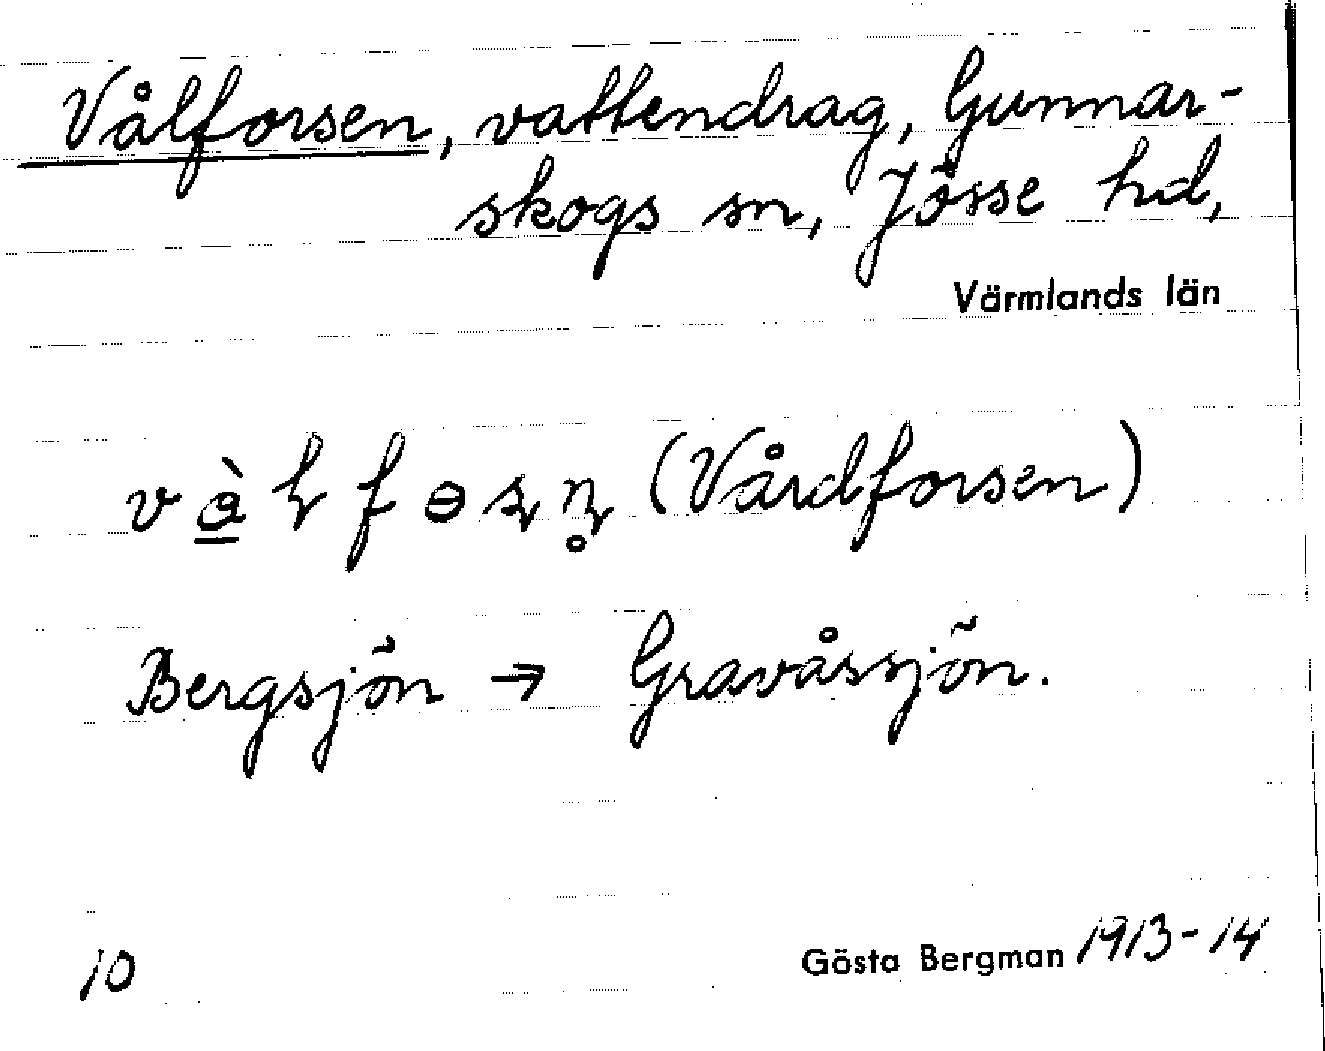 Vålforsen, vattendrag, Gunnar-
skogs sn, Jösse hd,
Värmlands län
(Vårdforsen)
Bergsjön → Gravåssjön.
10
Gösta Bergman 1913-14